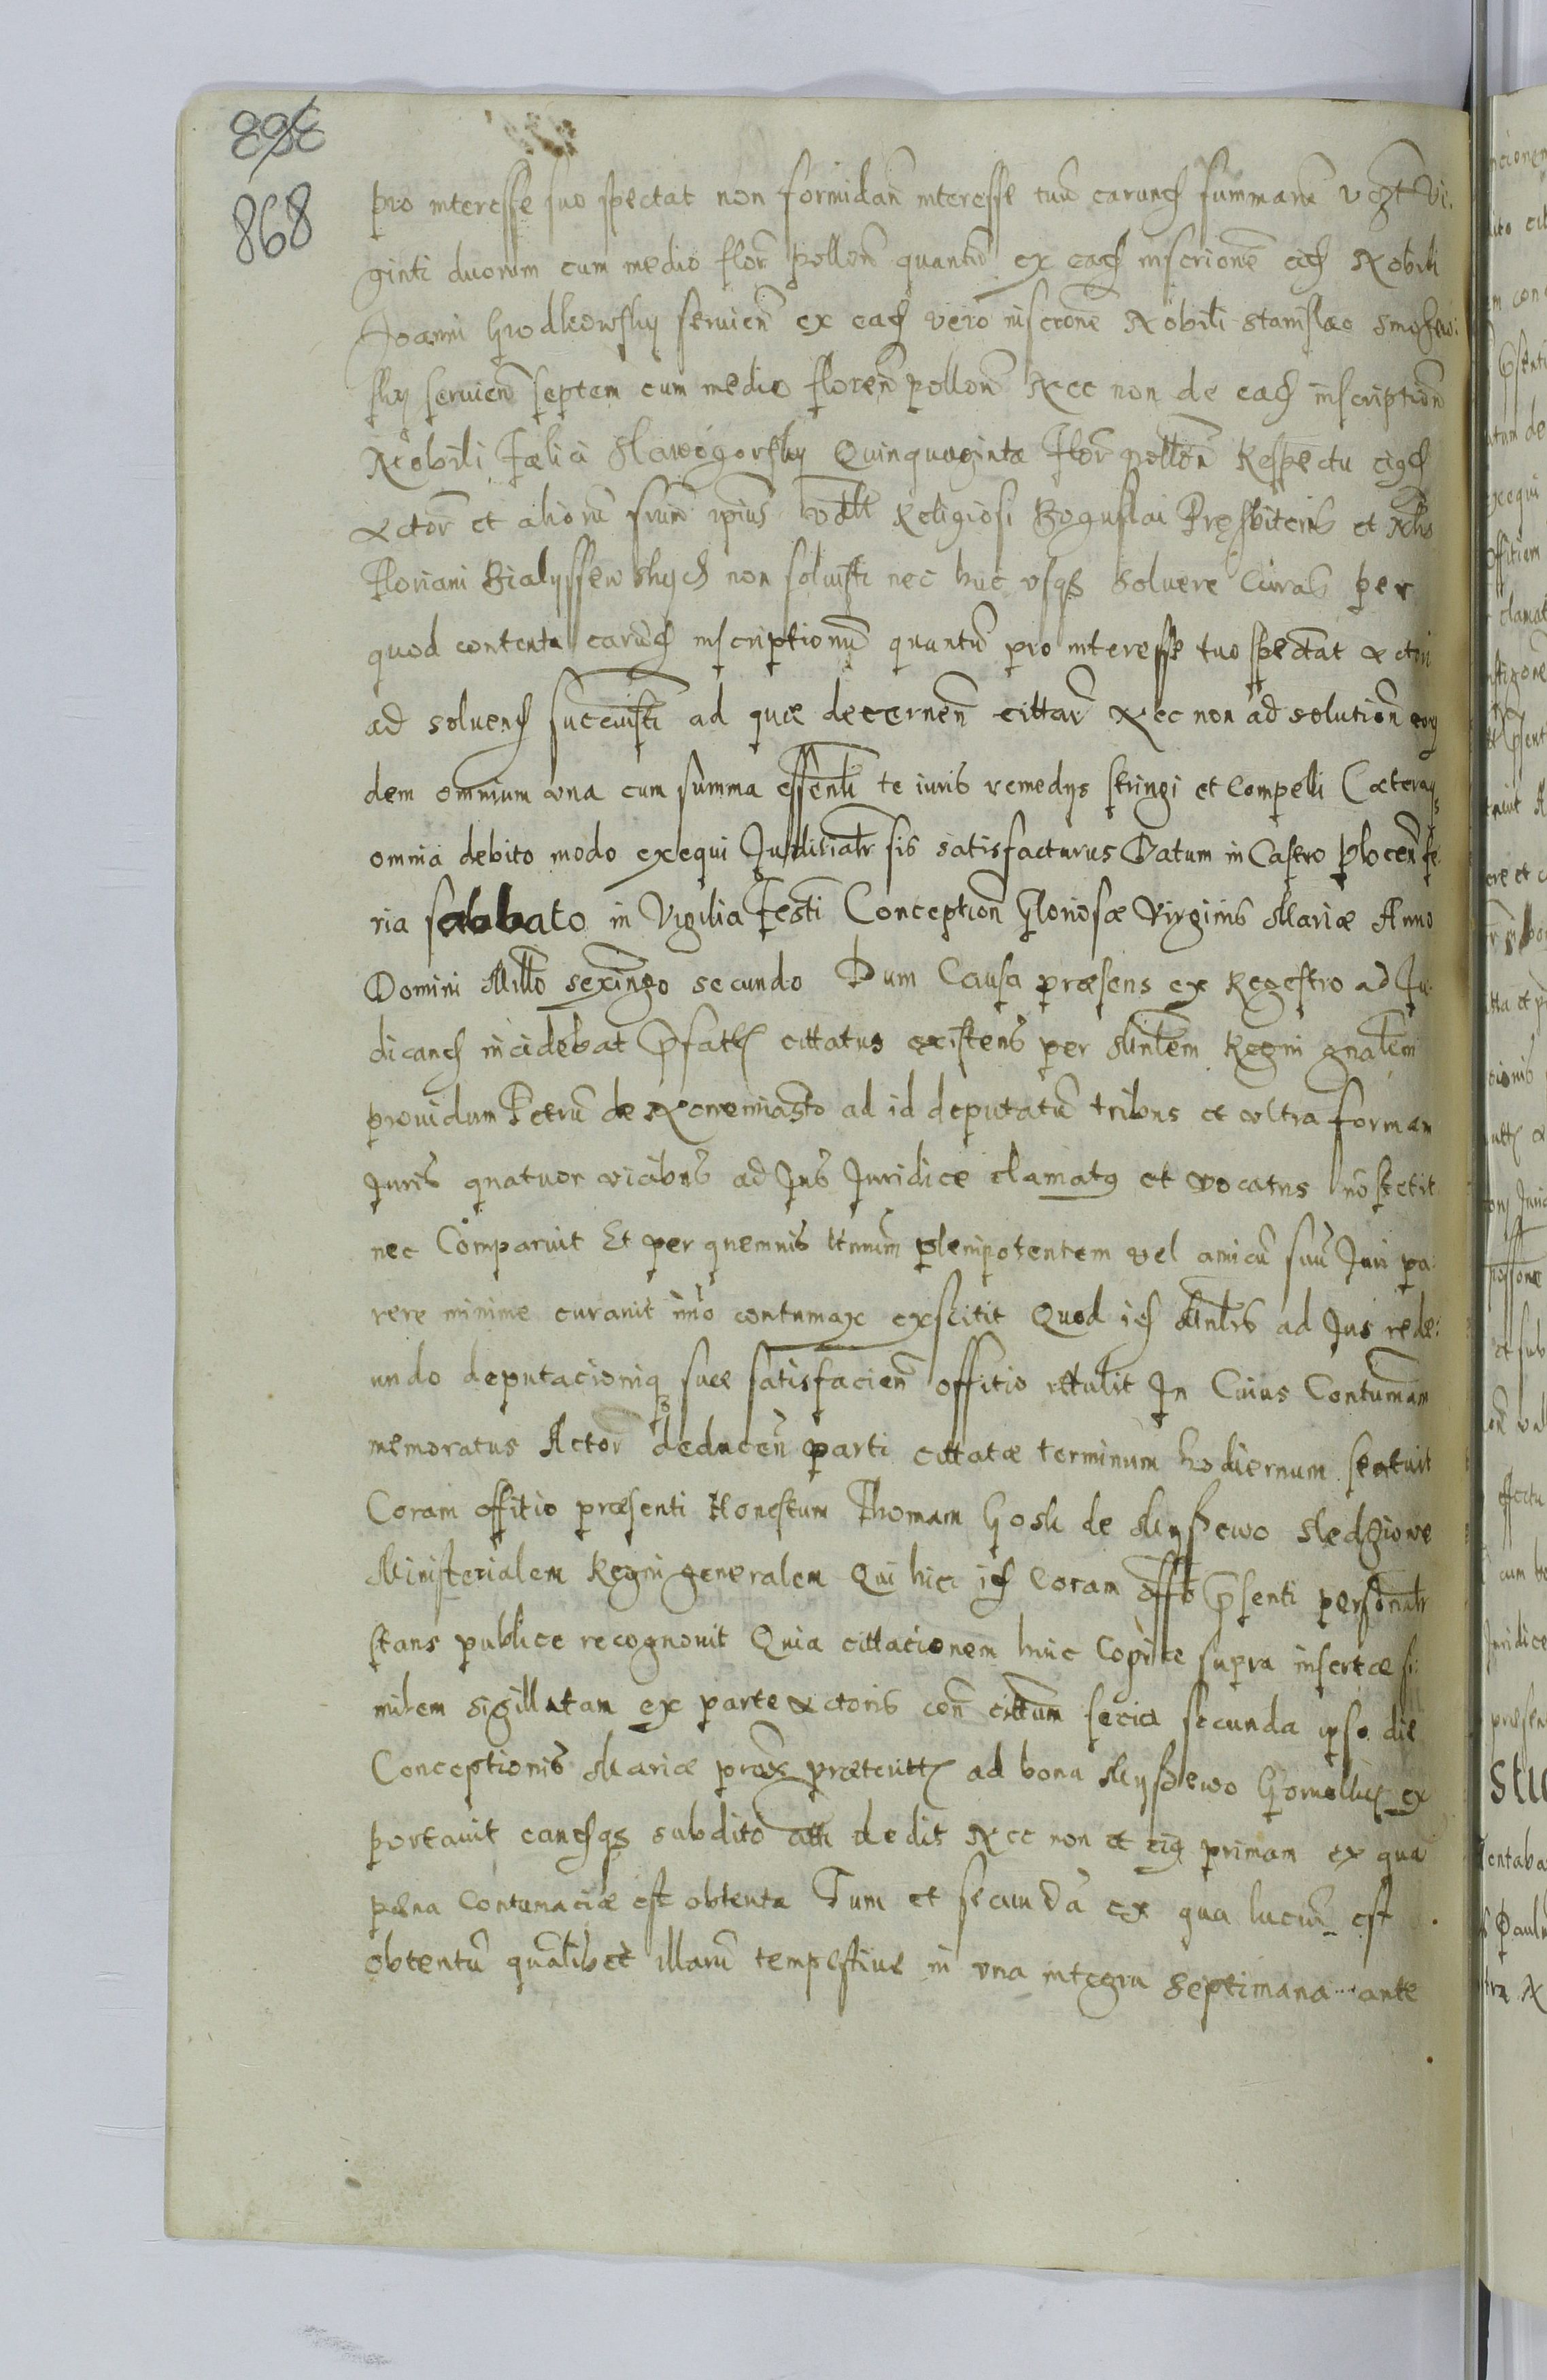 868
pro interesse suo spectat non formidan interesse tuu earund summaru vzt Vi:
ginti duorum cum medio flor pollon quantu ex ead inscrione eid Nobili
Joanni Grodkowsky seruien ex ead vero inscrone Nobili Stanislao
sky seruien septem cum medio floren pollon Nec non de ead inscription
Nobili Fælici Slawogorsky Quinquaginta Flor pollon Respectu eigd
Actor et alioru frum ipius vdlt Religiosi Boguslai Presbiteris et Nlis
Floriani Bialyssewskyd non soluisti nec huc vsqz soluere Curas per
quod contenta earud inscriptionu quantu pro interesse tuo spectat Actori
ad soluend succuisti ad quæ decernen cittar Nec non ad solution eoru
dem omnium vna cum summa essenli te iuris remedys stringi et Compelli Cæteraqz
omnia debito modo exequi Judicialr sis satisfacturus Datum in Castro Plocen fe
ria sabbato in Vigilia Festi Conception Gloriosæ Virginis Mariæ Anno
Domini Millo sexingo secundo Dum Causa præsens ex Regestro ad Ju
dicand incidebat pfatus cittatus existens per Minlem Regni gnalem
prouidum Petru de Nonemiasto ad id deputatu tribus et vltra formam
Juris quatuor vicibus ad Jus Juridice clamatg et vocatus no stetit
nec Comparuit Et per quemuis ltnum plenipotentem vel amicu suu Juri pa:
rere minime curauit imo contumax exstitit Quod id Minlis ad Jus rede:
undo deputacioniq suæ satisfacien offitio rttulit In Cuius Contumam
memoratus Actor deducen parti cittatæ terminum hodiernum statuit
Coram offitio præsenti Honestum Thomam Gosk de Myszewo Sledziowe
Ministerialem Regni generalem Qui hic id Coram offo psenti personalr
stans publice recognouit Quia cittationem huic Copiæ supra insertæ si
milem sigillatam ex parte Actoris con cittum feria secunda ipso die
Conceptionis Mariæ prox præteritt ad bona Myszewo Gornelluch ex
portauit eandqz subdito atti dedit Nec non et eig primam ex qua
pæna Contumaciæ est obtenta Tum et secunda ex qua lucru est
obtentu qualibet illaru tempestiue in vna integra septimana ante